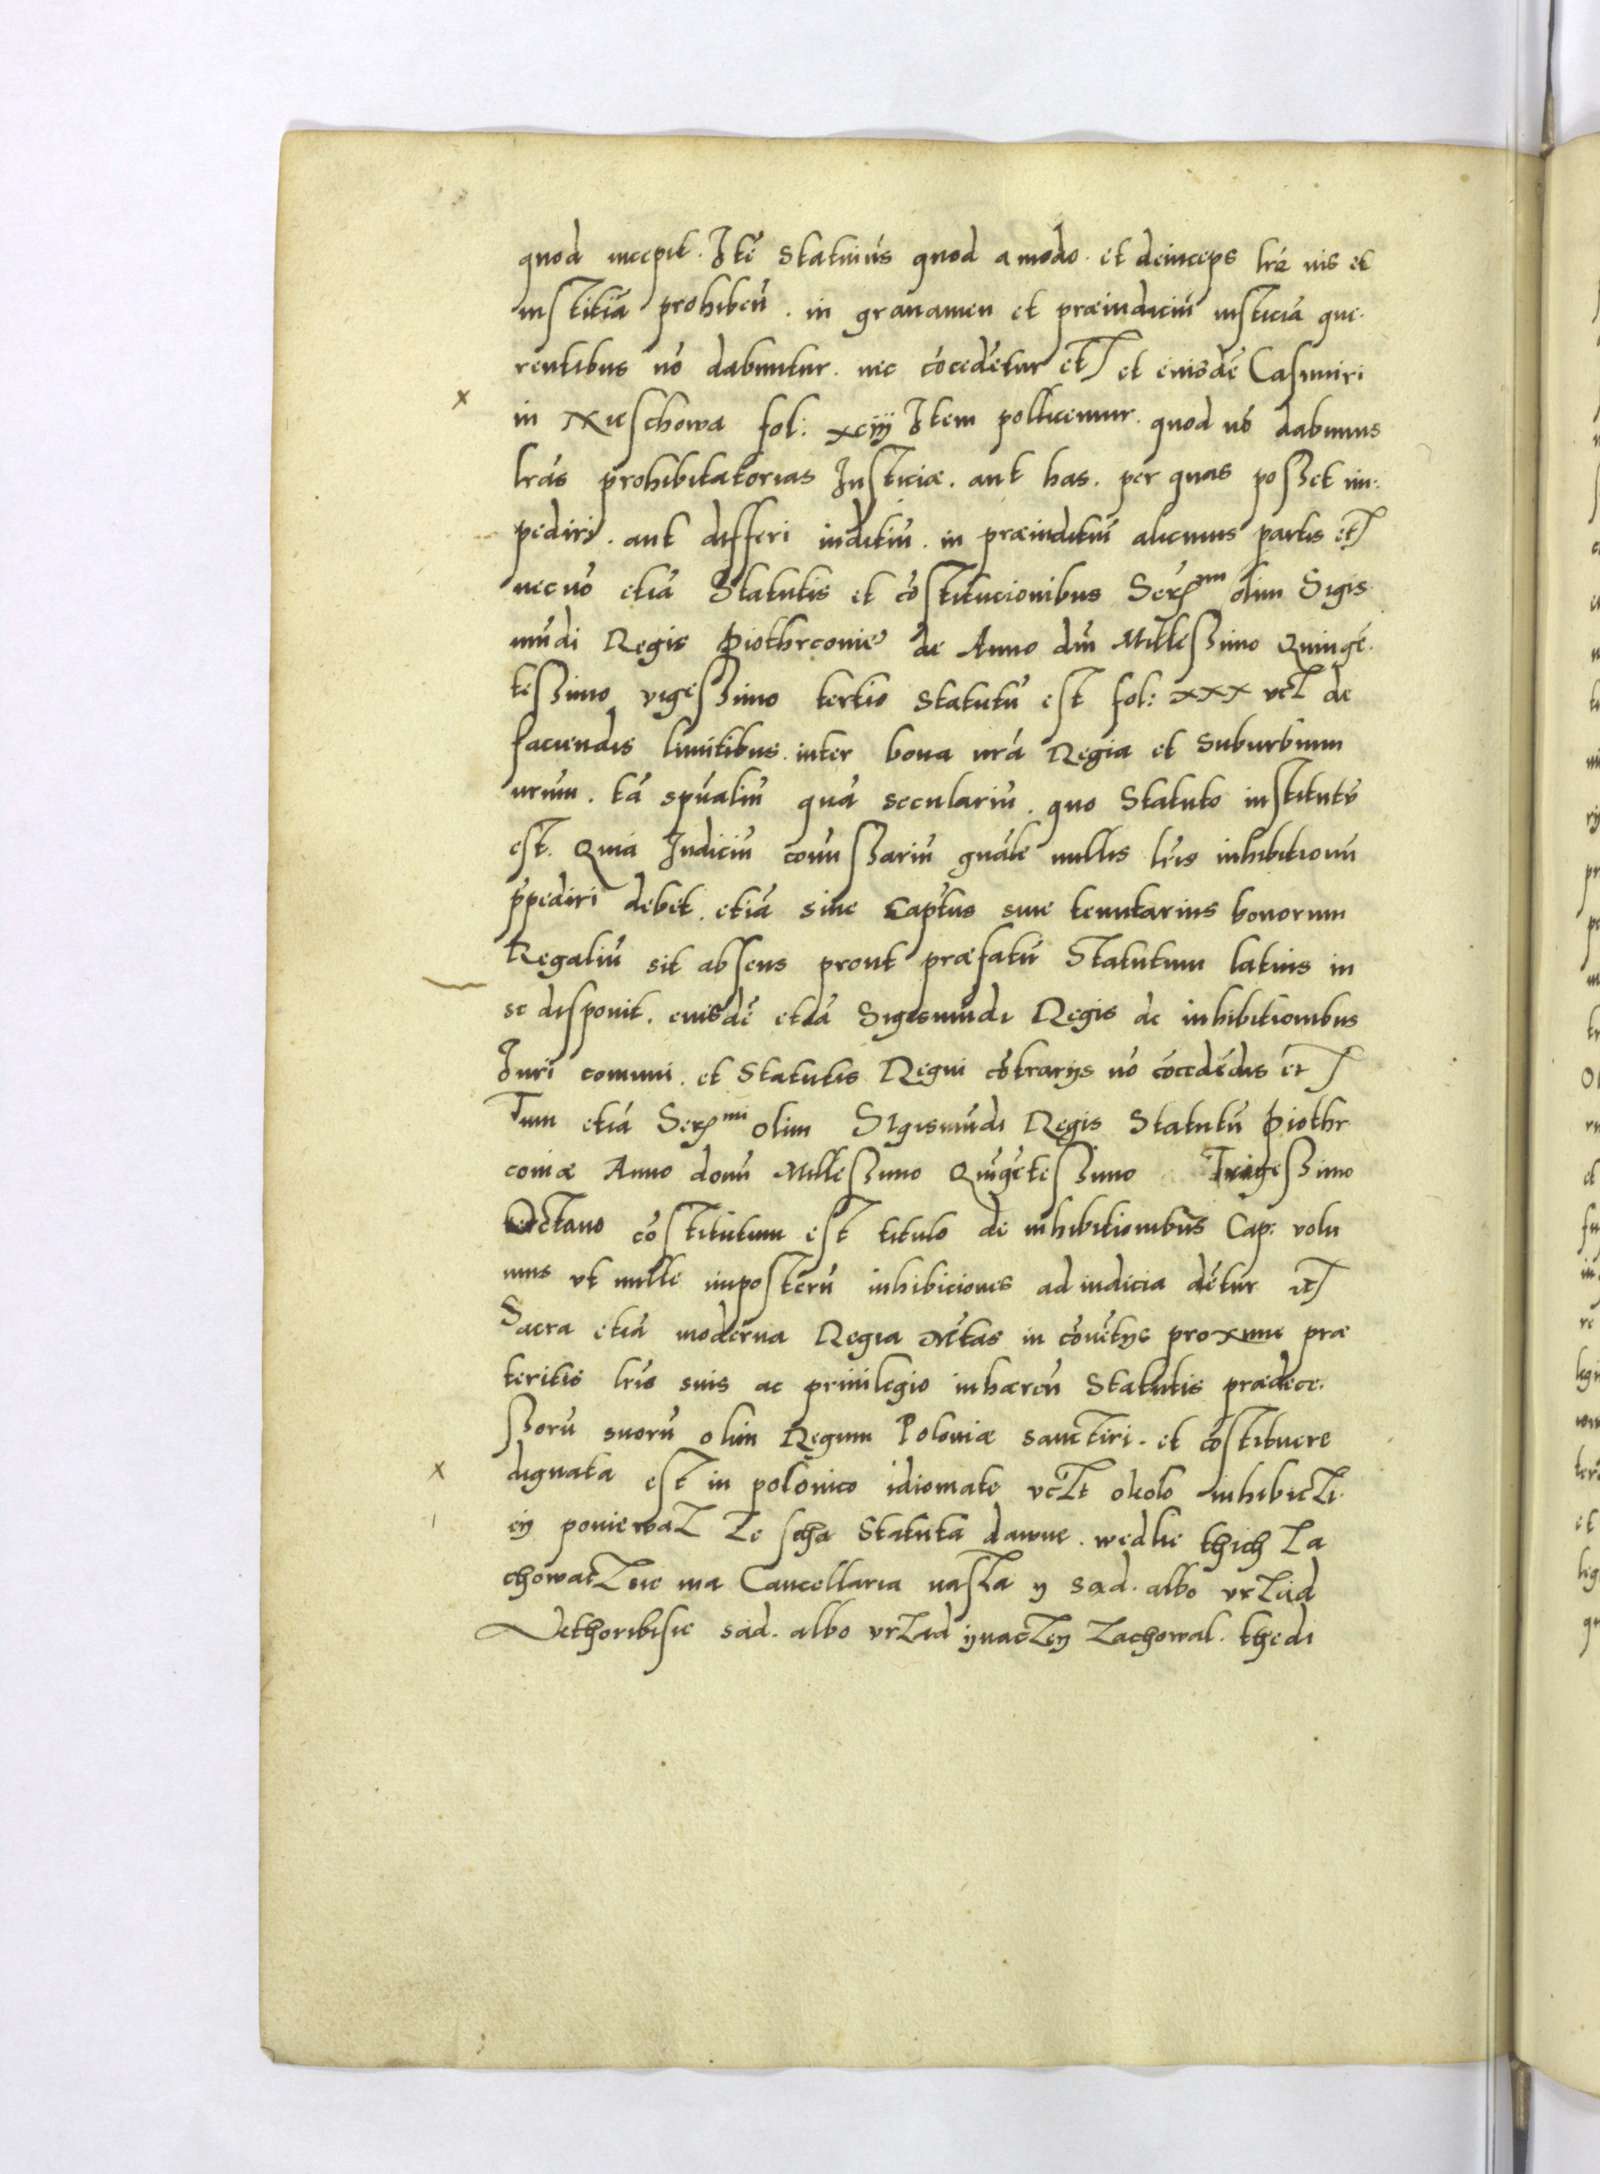 quod incepit. Itē statuiūs quod amodo. et deinceps lrē uis et
iustitiā prohibeñ. in grauamen et præiudiciū iusticiā que-
rentibus nō dabuntur. nec cōcedētur etc et eiusdē Casimiri
in Nieschowa fol: xciij Item pollicemur. quod nō dabimus
lrās prohibitatorias Iusticiæ. aut has. per quas posset im-
pediri. aut differi iuditiū. in præiuditiū alicuius partis etc
necnō etiā Statutis et cōstitucionibus Seren^mi olim Sigis-
mūdi Regis Piothrconiē de Anno dm̄ Millessimo Quingē-
tessimo vigessimo tertio statutū est fol: xxx vcz de
faciendis limitibus. inter bona nrā Regia et suburbium
nrūm. tā spūaliū quā seculariū. quo Statuto institutū
est. Quia Iudiciū comissariū gnāle nullis lrīs inhibitionū
p̄pediri debet. etiā siue Captus siue tenutarius bonorum
Regaliū sit absens prout præfatū Statutum latius in
se disponit. eiusdē etiā Sigismūdi Regis de inhibitionibus
Iuri comuni. et Statutis Regni cōtrarijs nō cōcedēdis etc
Tum etiā Seren^mi olim Sigismūdi Regis Statutū Piothr
coniæ Anno domī Millessimo Quīgētessimo Trigessimo
Octauo cōstitutum est titulo de inhibitionibus Cap: volu
mus vt nulle imposterū inhibiciones ad iudicia dētur etc
Sacra etiā moderna Regia Mtas in cōuētijs proxime præ
teritis lrīs suis ac priuilegio inhæreñ Statutis prædece-
ssorū suorū olim Regum Poloniæ sanctiri. et cōstituere
dignata est in polonico idiomate vczt okolo inhibiczi-
ey poniewaz ze scha Statuta dawne. wedlie thich za
chowaczsie ma Cancellaria nasza y sąd. albo vrząd
Jethoribisie sąd. albo vrząd ynaczey zachowal. thedi